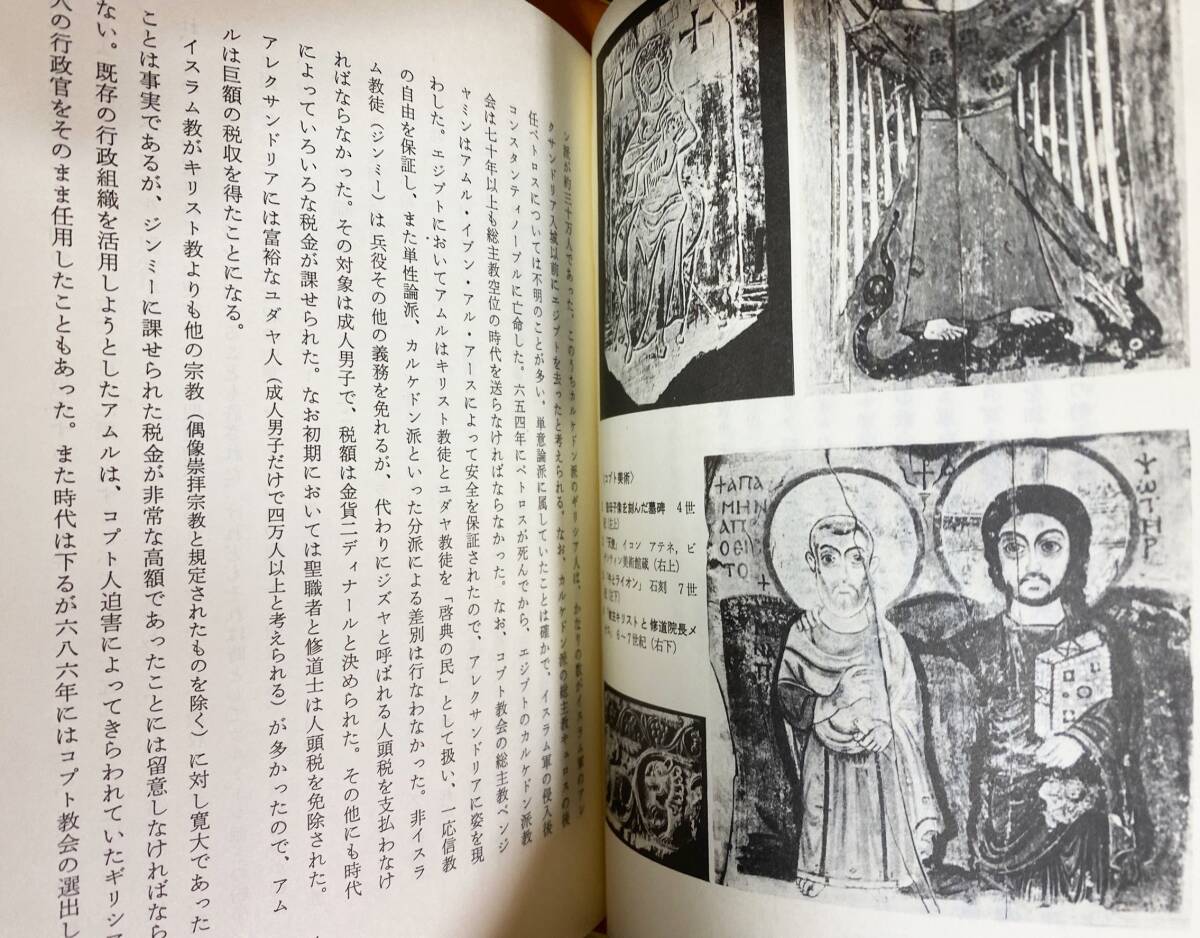 ン派が約三十万人であった。このうちカルケドン派のギリシア人は、かなりの数がイスラム軍のアレ
クサンドリア入城以前にエジプトを去ったと考えられる。なお、カルケドン派の総主教キュロスの後
任ペトロスについては不明のことが多い。単意論派に属していたことは確かで、イスラム軍の侵入後
コンスタンティノープルに亡命した。六五四年にペトロスが死んでから、エジプトのカルケドン派教
会は七十年以上も総主教空位の時代を送らなければならなかった。なお、コプト教会の総主教ベンジ
ャミンはアムル・イブン・アル・アースによって安全を保証されたので、アレクサンドリアに姿を現
わした。エジプトにおいてアムルはキリスト教徒とユダヤ教徒を「啓典の民」として扱い、一応信教
の自由を保証し、また単性論派、カルケドン派といった分派による差別は行なわなかった。非イスラ
ム教徒（ジンミー）は兵役その他の義務を免れるが、代わりにジズヤと呼ばれる人頭税を支払わなけ
ればならなかった。その対象は成人男子で、税額は金貨二ディナールと決められた。その他にも時代
によっていろいろな税金が課せられた。なお初期においては聖職者と修道士は人頭税を免除された。
アレクサンドリアには富裕なユダヤ人（成人男子だけで四万人以上と考えられる）が多かったので、アム
ルは巨額の税収を得たことになる。
イスラム教がキリスト教よりも他の宗教（偶像崇拝宗教と規定されたものを除く）に対し寛大であった
ことは事実であるが、ジンミーに課せられた税金が非常な高額であったことには留意しなければなら
ない。既存の行政組織を活用しようとしたアムルは、コプト人迫害によってきらわれていたギリシア
人の行政官をそのまま任用したこともあった。また時代は下るが六八六年にはコプト教会の選出し
コプト美術〉
母子像を刻んだ墓碑 4世
（左上）
「天使」イコン アテネ，ビ
ザンティン美術館蔵（右上）
とライオン」石刻 7世
（左下）
キリストと修道院長メ
6〜7世紀（右下）
ΑΠΑ
ΜΗΝ
ΑΠΟ
ΘΕΙС
ΤΟ
ΨΩΤΗΡ